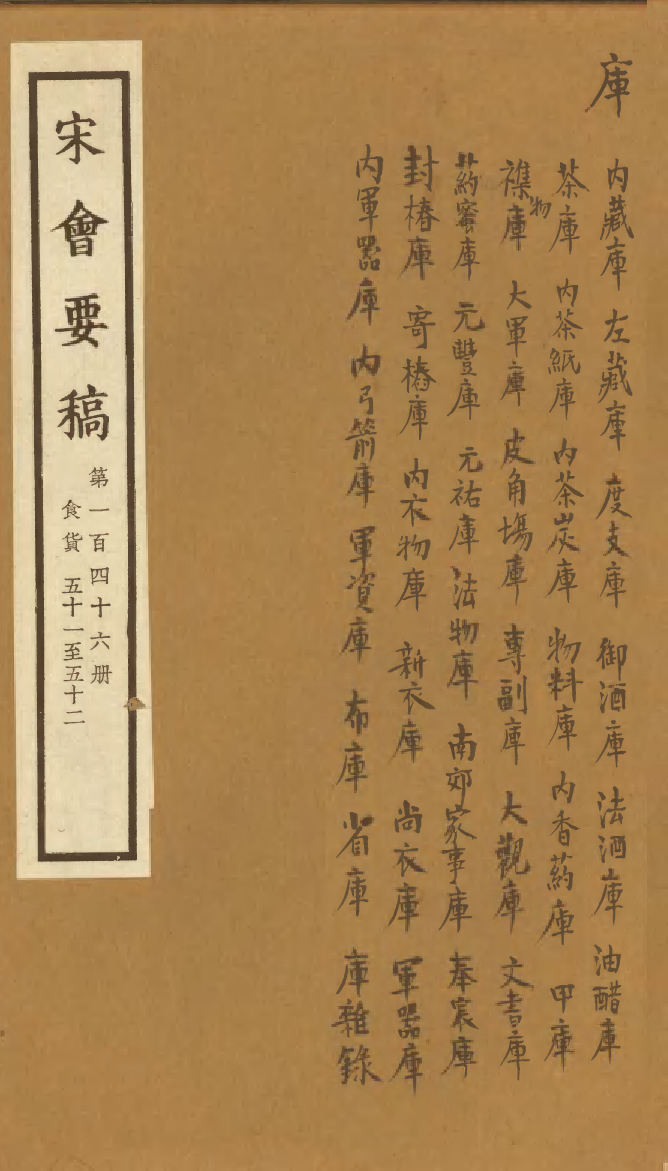 庫
内藏庫 左藏庫 度支庫 御酒庫 法酒庫 油醋庫
茶庫 内茶紙庫 内茶炭庫 物料庫 内香葯庫 甲庫
襍物庫 大軍庫 皮角塲庫 專副庫 大觀庫 文書庫
葯蜜庫 元豐庫 元祐庫 法物庫 南郊家事庫 奉宸庫
封樁庫 寄樁庫 内衣物庫 新衣庫 尚衣庫 軍器庫
内軍器庫 内弓箭庫 軍資庫 布庫 省庫 庫雜錄
宋會要稿
第一百四十六册
食貨 五十一至五十二